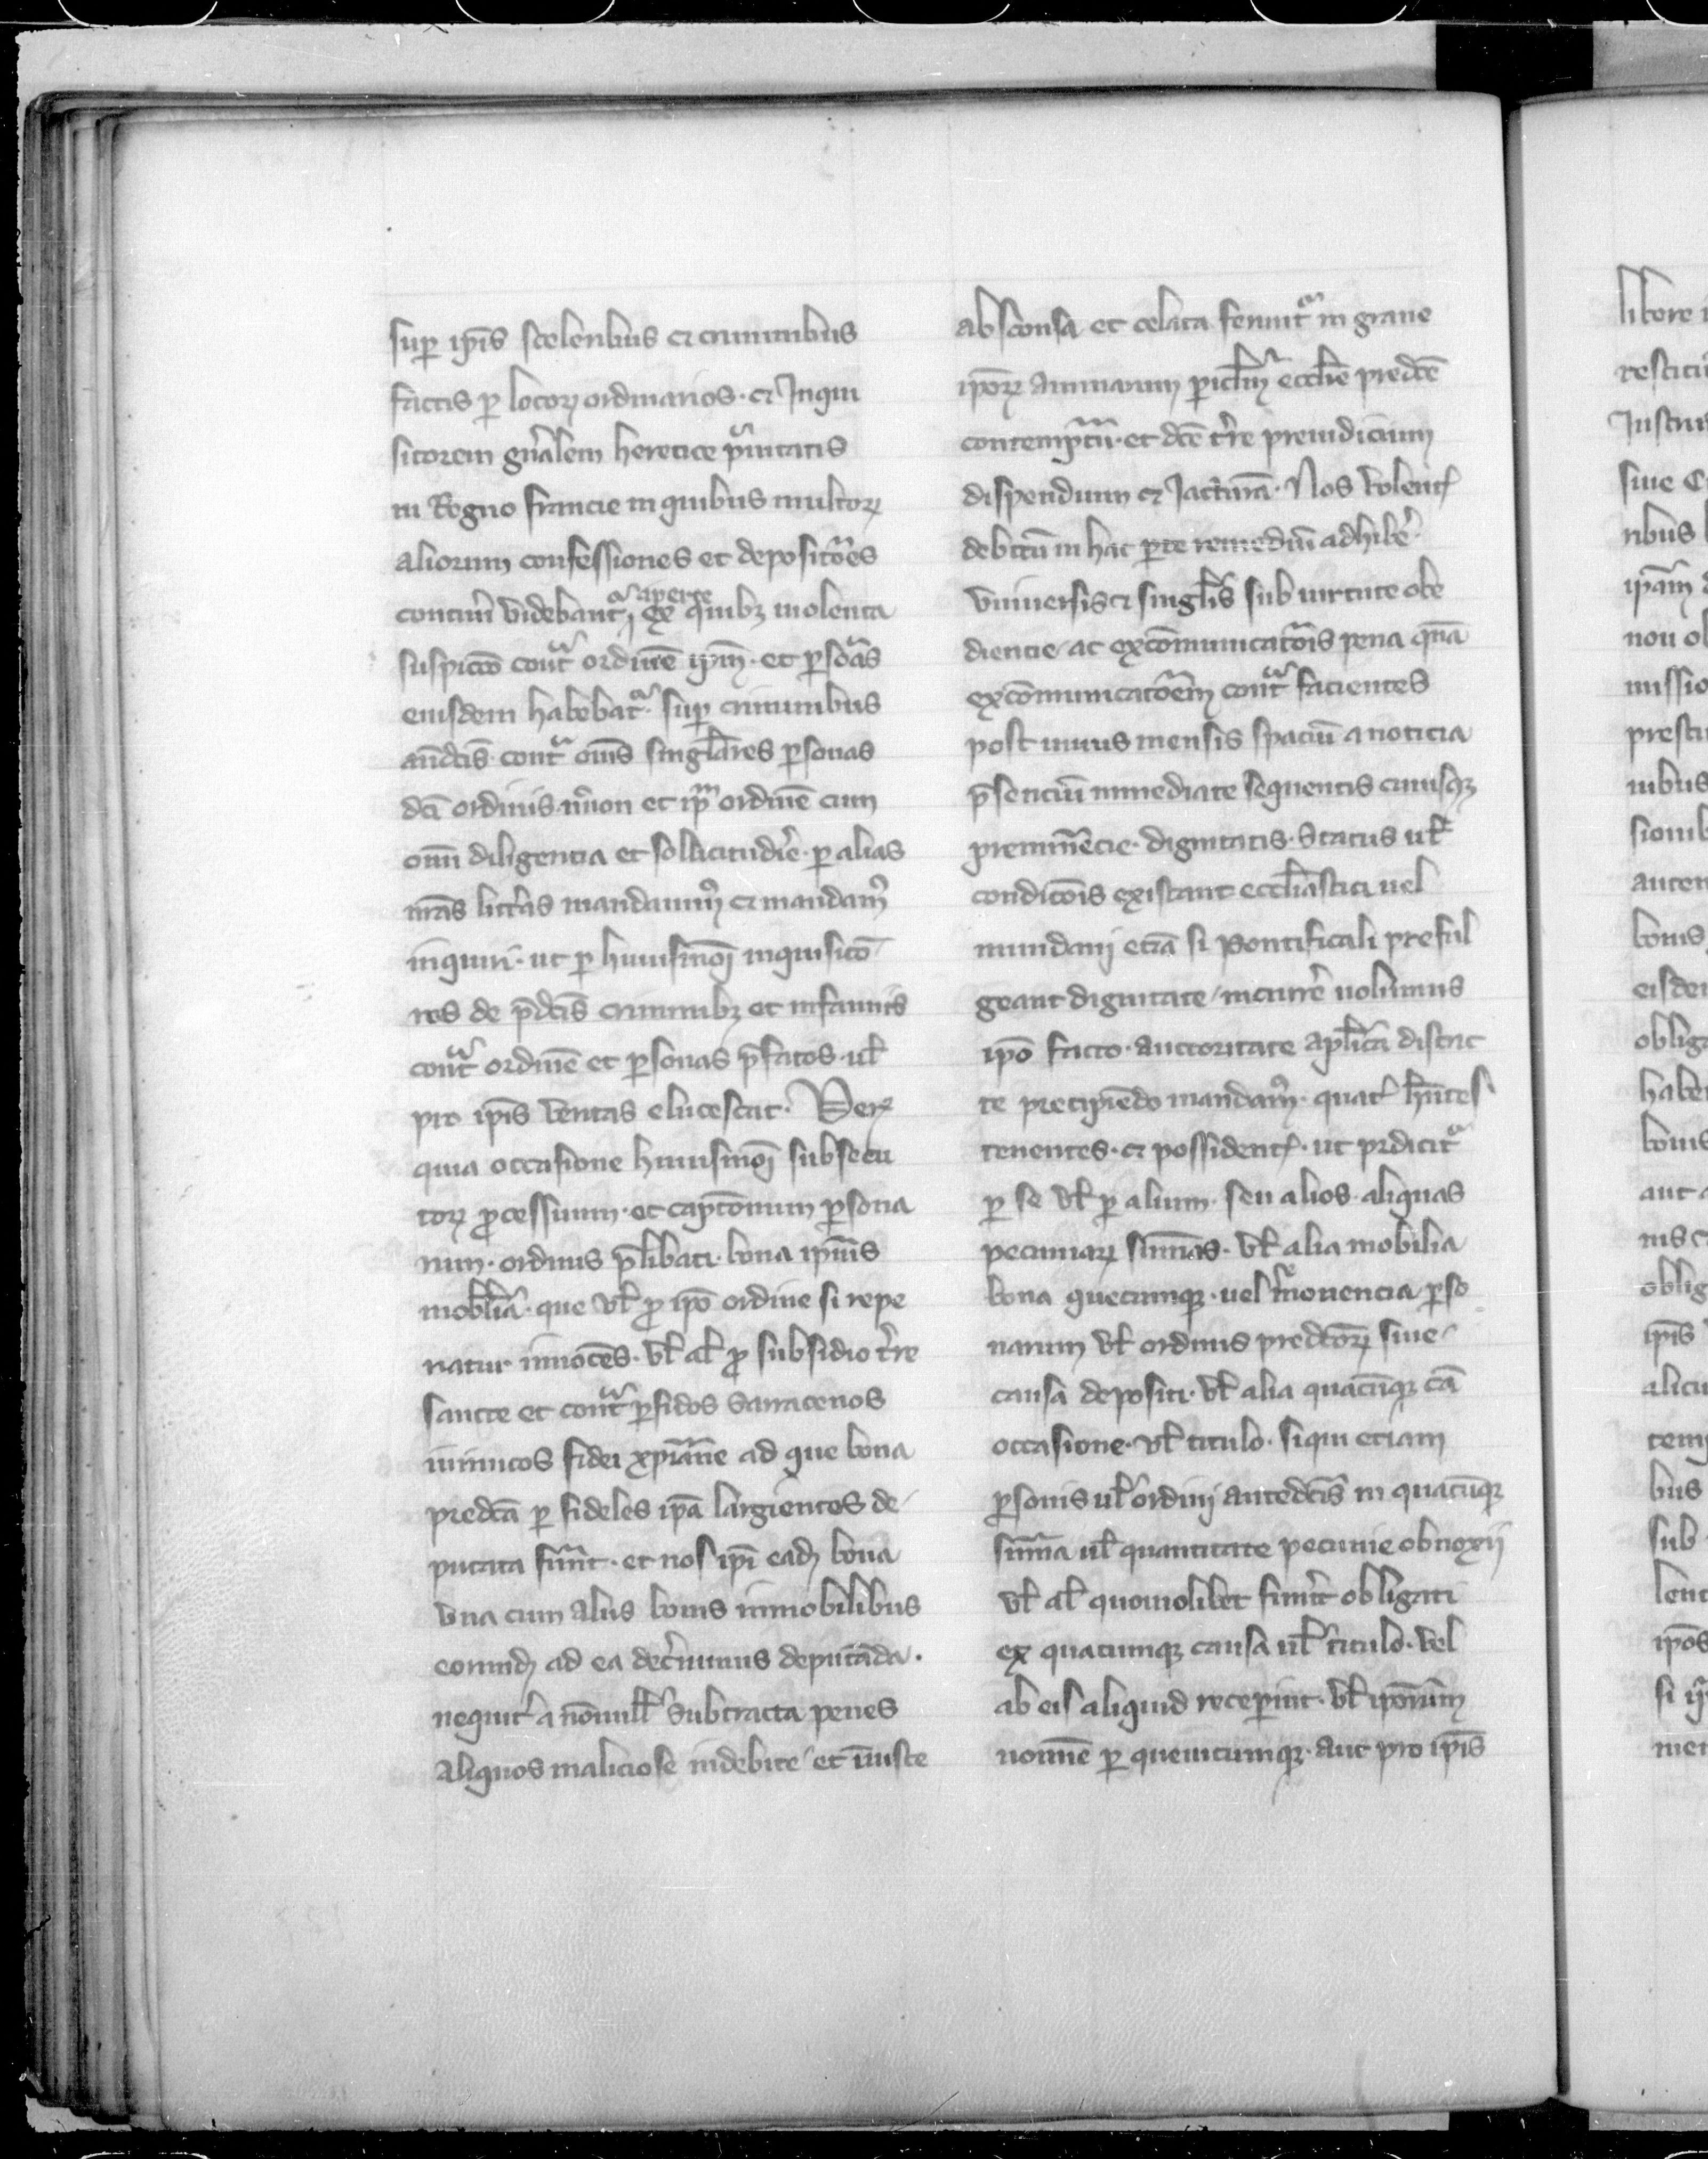 sup ip̄is sceleribus et criminibus
factis p locorꝝ ordinarios · et Inqui
sitorem gn̄alem heretice p̄uitatis
in Regno francie in quibus multorꝝ
aliorum confessiones et deposico͞es
contineri videbant᷑ aperte ex quibꝫ uiolenta
suspicio cont̃ ordinē ip̄m · et ꝑso͞as
eiusdem habebat᷑ · sup criminibus
an̄dcīs cont̃ om̄s singlāres ꝑsonas
dc̄i ordinis n̄non et ip̄m ordinē cum
omī diligentia et sollicitudīe · ꝑ alias
nr̄as litt̄as mandauimꝰ et mandamꝰ
inquiri · ut ꝑ huiusmōi inquisico
res de p̄dc̄is criminibꝫ et infamiis
cont̃ ordinē et ꝑsonas p̄fatos · ul̄
pro ip̄is veritas elucescat · Verꝝ
quia occasione huiusmōi subsecu
torꝝ ꝓcessuum · et capcōnum ꝑsona
rum · ordinis p̄libati · bona ip̄ius
mobl̄ia · que vl̄ ꝓ ip̄o ordine si repe
riatur innocēs · vl̄ al̄ ꝓ subsidio t̄re
sancte et cont̃ ꝑfidos Sarracenos
inimicos fidei xp̄iane ad que bona
predc̄a ꝑ fideles ip̄a largientes de
putata fu͞nt · et nos ip̄i eadꝫ bona
vna cum aliis bonis inmobilibus
eorundꝫ ad ea dec̄nimus deputāda ·
nequit̄ a nōnull̄ subtracta penes
aliquos maliciose indebite et īniuste
absconsa et celata feruint᷑ in graue
ip̄orꝝ animarum ꝑicl̄m eccl̄ie predcē
contemptū · et dcē t̄re preiudicium
dispendium et Jacturā · Nos volent̄
debitū in hac ꝑte remediū adhib̄e ·
vniuersis et singl̄is sub uirtute obe
diencie / ac excōmunicacōis pena quā
excōmunicacōem cont̃ facientes
post unius mensis spaciū a noticia
p̄senciū inmediate sequentis cuiusqꝫ
preminēcie · dignitatis · Status ul̄
condicōis existant eccl̄iastici uel
mundanj etiā si Pontificali preful
geant dignitate / incurr̄e uolumus
ip̄o facto · auctoritate ap̄lica distric
te precipiendo mandamꝰ · quat̄ hn̄tes
tenentes · et possident̄ · ut prdicit᷑
ꝑ se vl̄ ꝑ alium · seu alios · aliquas
pecuniarꝝ sum̄as · vl̄ alia mobilia
bona quecumqꝫ · uel se mouencia ꝑso
narum vl̄ ordinis predcōrꝝ siue
causa depositi · vl̄ alia quacūqꝫ cā
occasione · vl̄ titulo · siqui etiam
ꝑsonis ul̄ ordinj antedcīs in quacūqꝫ
sum̄a ul̄ quantitate pecunie obnoxij
vl̄ al̄ quomolibet fuer̄int obligati
ex quacumqꝫ causa ul̄ titulo · vel
ab eis aliquid receperint · vl̄ ip̄orum
nomine ꝑ quemcumqꝫ · aut pro ip̄is